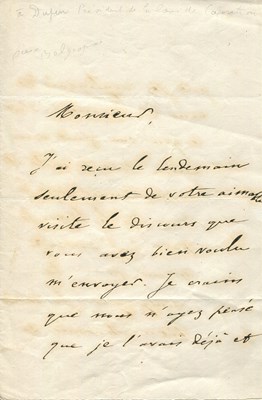 à Dupin Président de la Cour de Cassation
Monsieur,
J'ai reçu le lendemain
seulement de votre aimable
visite le discours que
vous avez bien voulu
m'envoyer. Je crains
que vous n'ayez pensé
que je l'avais déjà et